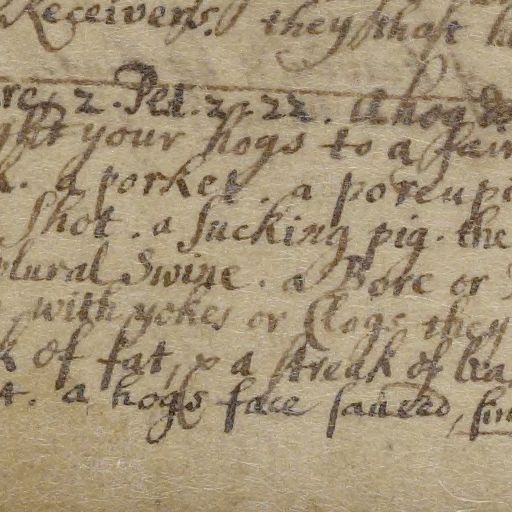 Receivers. they that
re. 2. Pet. 2. 22. A hog
ght your hogs to a fair
a porket. a porcupi
shot. a sucking pig. the
plural Swine. a Bore or
with yokes or Clogs they
k of fat, & a streak of lea
t. a hogs face saused, sin